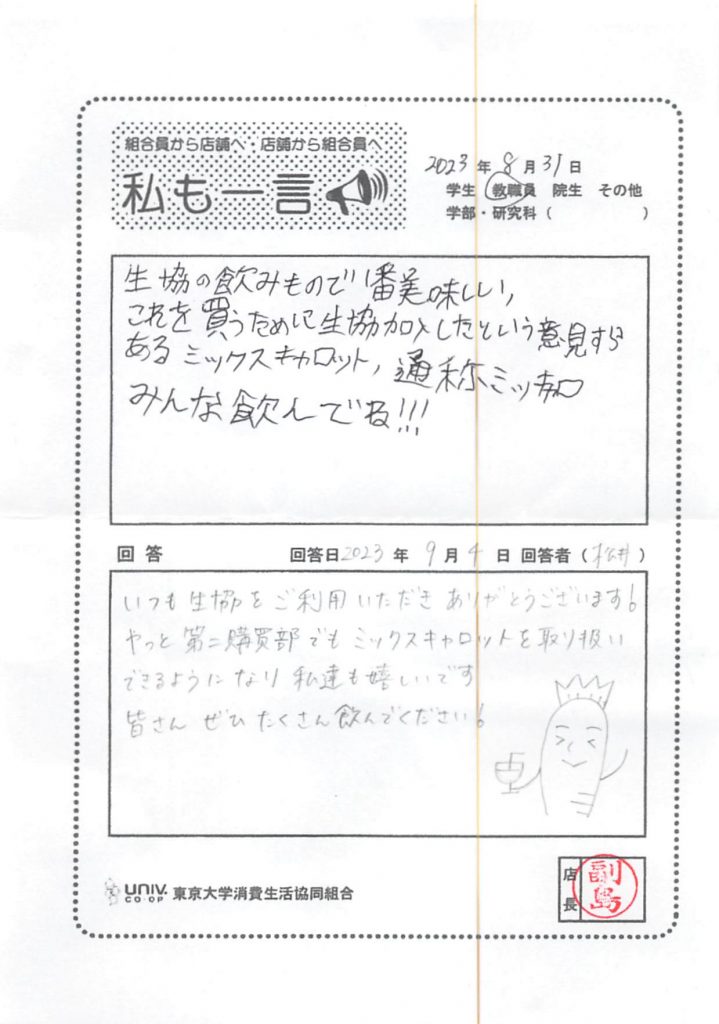 組合員から店舗へ・店舗から組合員へ
私も一言
2023年8月31日
学生 教職員 院生 その他
学部・研究科（　　　　）
生協の飲みもので1番美味しい,
これを買うために生協加入したという意見すら
ある ミックスキャロット, 通称ミッキャロ
みんな飲んでね!!!
回答 回答日2023年9月4日 回答者（松井）
いつも生協をご利用いただきありがとうございます!
やっと第二購買部でもミックスキャロットを取り扱い
できるようになり私達も嬉しいです
皆さん ぜひ たくさん飲んでください!
UNIV. CO・OP 東京大学消費生活協同組合
店長 副島